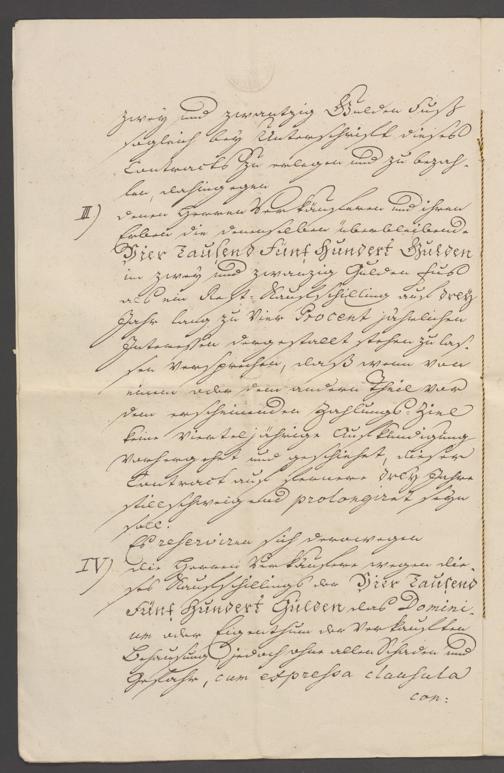 zwey und zwantzig Gulden Fuß
sogleich bey Unterschrifft dieses
Contracts zu erlegen und zu bezah-
len, dahingegen
III) denen Herren Verkäufferen und ihren
Erben die denenselben überbleibende
Vier Tausend Fünf Hundert Gulden
im zwey und zwanzig Gulden Fus
als ein Rest-Kauffschilling auf drey
Jahr lang zu Vier Procent jährlichen
Interessen dergestallt stehen zu las-
sen Versprechen, daß wenn von
einem oder dem andern Theil vor
dem erscheinenden Zahlungs-Ziel
keine Vierteljährige Aufkündigung
vorhergehet und geschiehet, dieser
Contract auf fernere drey Jahre
stillschweigend prolongiret seyn
soll.
Es reserviren sich derowegen
IV) die Herren Verkäuffere wegen die-
ses Kauffschillings der Vier Tausend
Fünf Hundert Gulden das Domini-
um oder Eigenthum der Verkaufften
Behausung jedoch ohne allen Schaden und
Gefahr, cum expressa clausula
con: